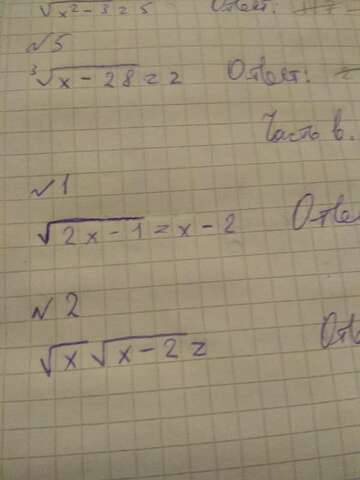 √x² - 3 = 5 Ответ:
№5
³√x - 28 = 2 Ответ:
Часть В.
№1
√2x - 1 = x - 2
№2
√x √x - 2 =